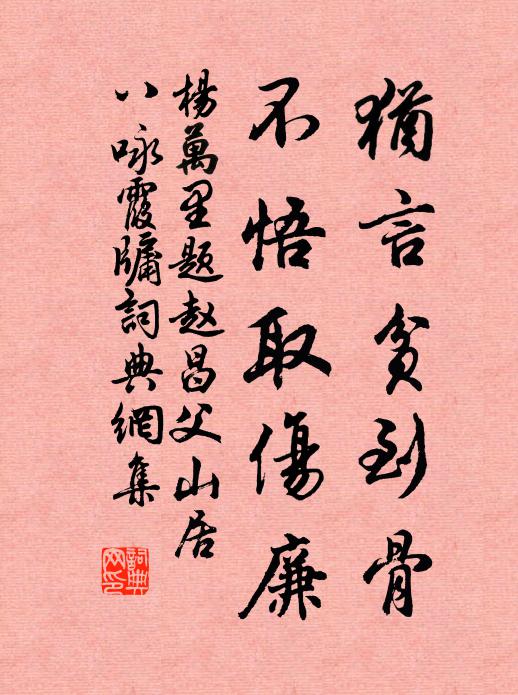 猶言貧到骨
不悟取傷廉
楊萬里題趙昌父山居
八咏霞牖詞典網集
詞典
网印